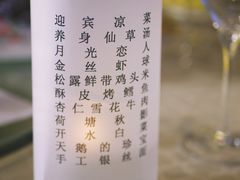 迎宾凉菜
养身仙草汤
月光恋人
金丝虾球
松露鲜带鸡头米
酥皮烤鳕鱼
杏仁雪花牛肉
荷塘秋影
开水白菜
天鹅的珍宝
手工银丝面